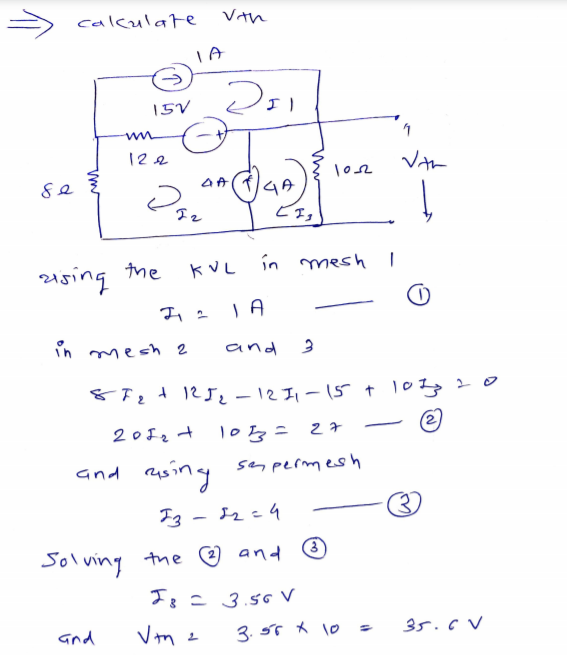 ⇒ calculate Vth
1A
15V
I1
12Ω
8Ω
4A
4A
10Ω
Vth
I2
I3
using the KVL in mesh 1
I1 = 1A —— ①
in mesh 2 and 3
8I2 + 12I2 – 12I1 – 15 + 10I3 = 0
20I2 + 10I3 = 27 — ②
and using supermesh
I3 – I2 = 4 —— ③
Solving the ② and ③
I3 = 3.56 V
and Vth = 3.56 × 10 = 35.6 V